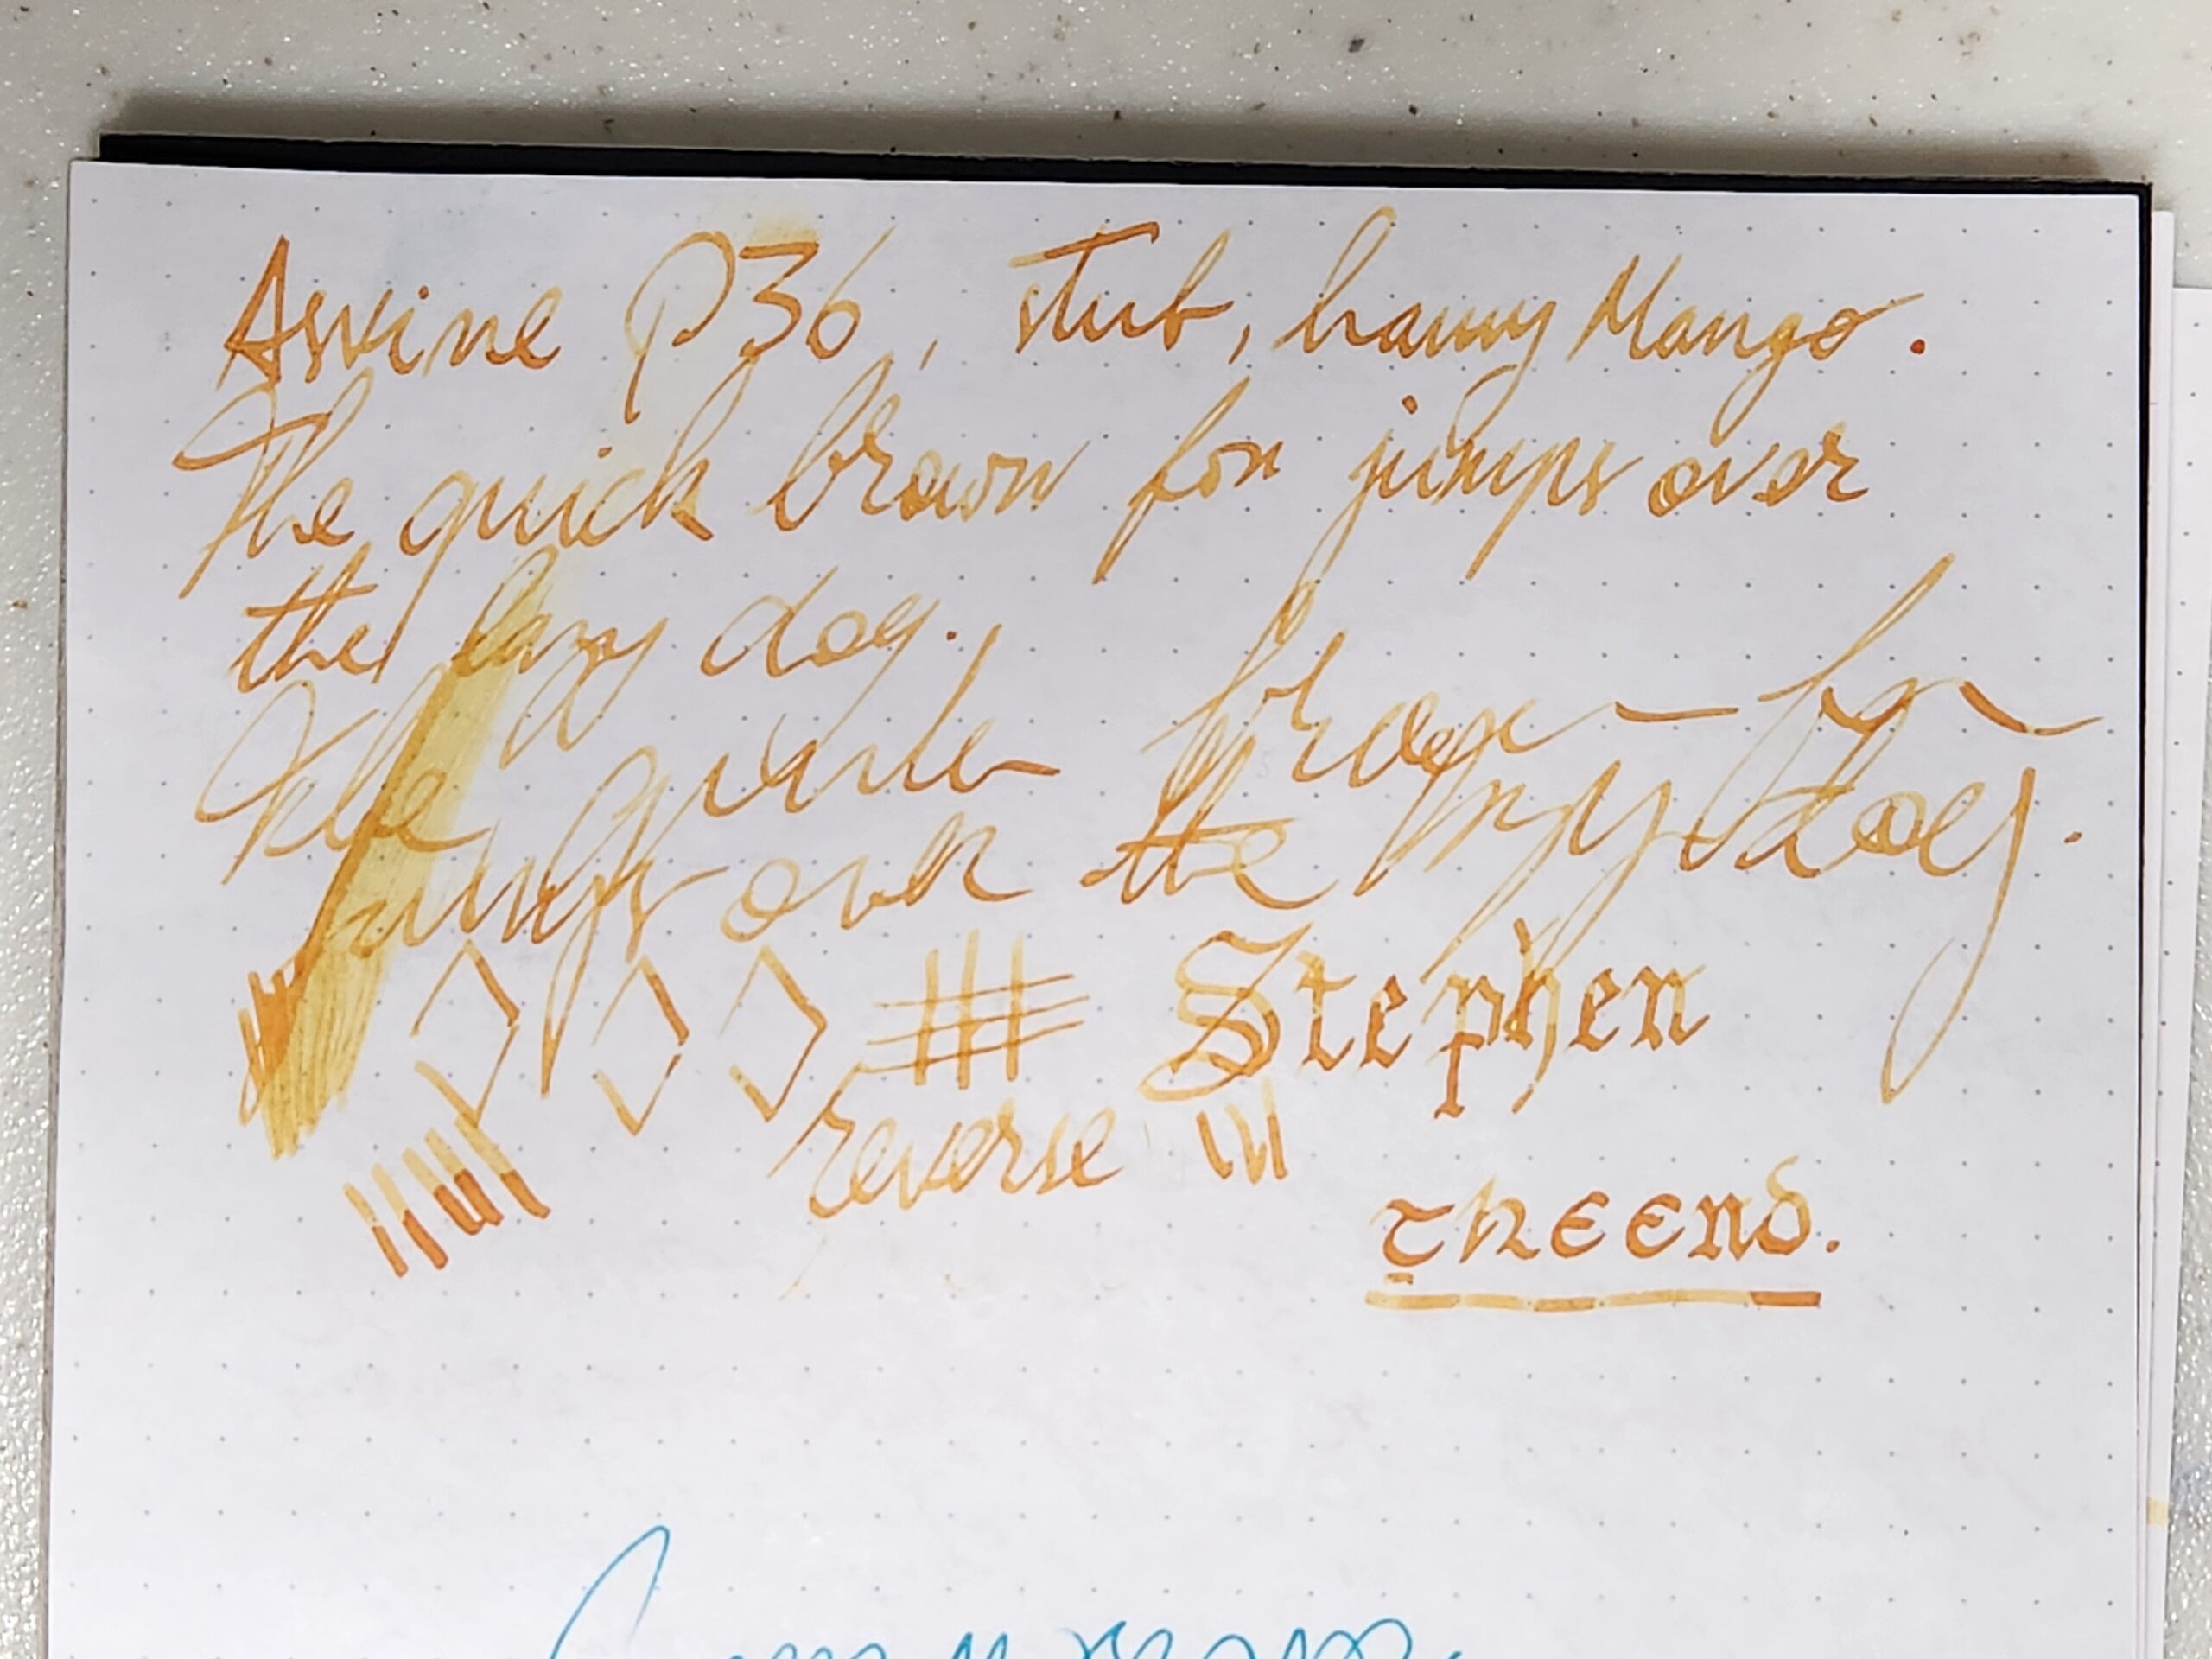 Asvine P36, stub, hawy Mango.
The quick brown fox jumps over
the lazy dog.
The quick brown fox
jumps over the lazy dog.
Stephen
reverse
THE END.